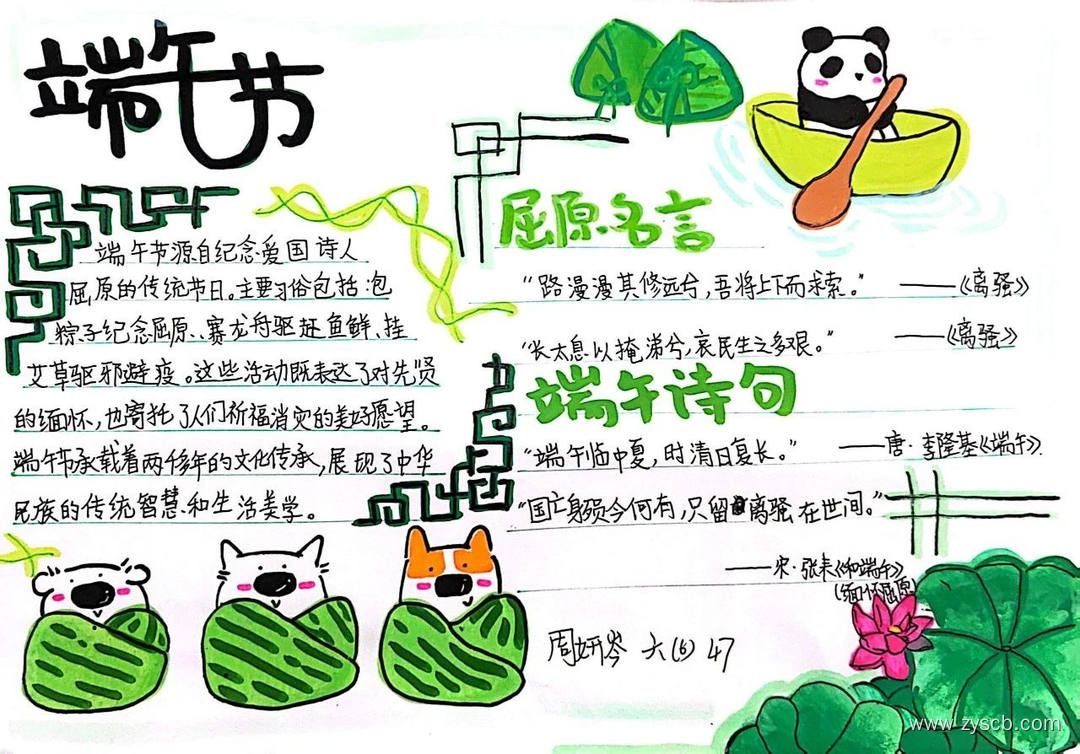 端午节
端午节源自纪念爱国诗人
屈原的传统节日。主要习俗包括:包
粽子纪念屈原、赛龙舟驱赶鱼鲜、挂
艾草驱邪避疫。这些活动既表达了对先贤
的缅怀,也寄托了人们祈福消灾的美好愿望。
端午节承载着两千多年的文化传承,展现了中华
民族的传统智慧和生活美学。
屈原名言
“路漫漫其修远兮,吾将上下而求索。” ——《离骚》
“长太息以掩涕兮,哀民生之多艰。” ——《离骚》
端午诗句
“端午临中夏,时清日复长。” ——唐·李隆基《端午》
“国亡身殒今何有,只留离骚在世间。”
——宋·张耒《和端午》
(缅怀屈原)
周妍岑 六(6) 47
www.zyscb.com